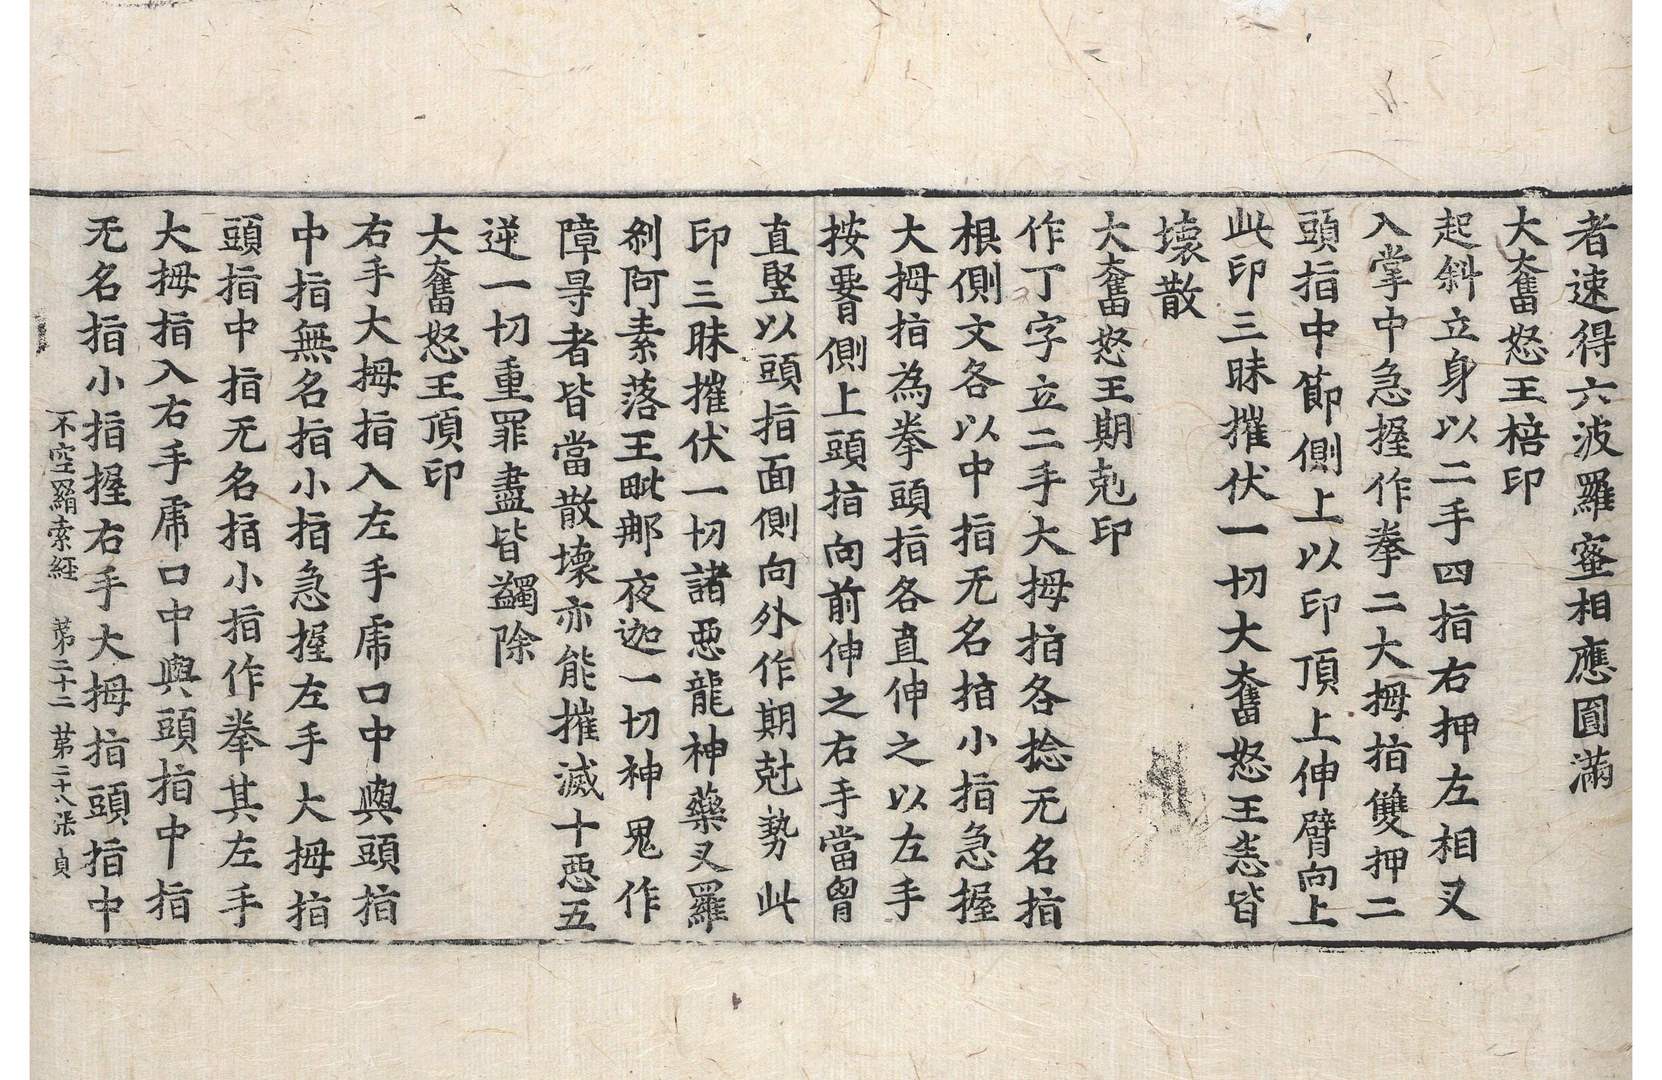 者速得六波羅蜜相應圓滿
大奮怒王棓印
起斜立身以二手四指右押左相叉
入掌中急握作拳二大拇指雙押二
頭指中節側上以印頂上伸臂向上
此印三昧摧伏一切大奮怒王恙皆
壞散
大奮怒王期剋印
作丁字立二手大拇指各捻无名指
根側文各以中指无名指小指急握
大拇指為拳頭指各直伸之以左手
按䯒側上頭指向前伸之右手當胷
直竪以頭指面側向外作期尅勢此
印三昧摧伏一切諸惡龍神藥叉羅
剎阿素落王毗那夜迦一切神鬼作
障㝵者皆當散壞亦能摧滅十惡五
逆一切重罪盡皆蠲除
大奮怒王頂印
右手大拇指入左手虎口中與頭指
中指無名指小指急握左手大拇指
頭指中指无名指小指作拳其左手
大拇指入右手虎口中與頭指中指
无名指小指握右手大拇指頭指中
不空羂索経 第二十二 第二十八張 貞